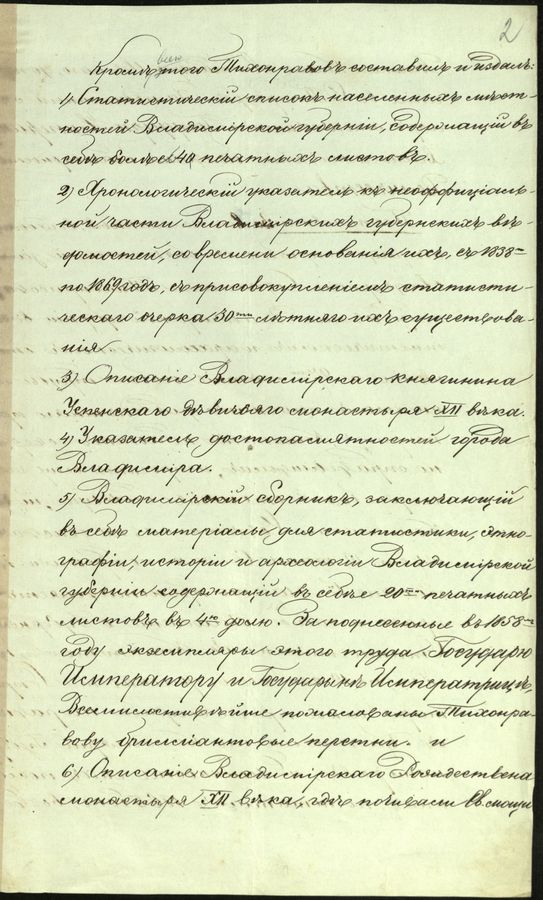 2
всего
Кромѣ этого Тихонравовъ составилъ и издалъ:
1) Статистическій списокъ населенныхъ мѣст-
ностей Владимірской губерніи, содержащій въ
себѣ болѣе 40 печатныхъ листовъ.
2) Хронологическій указатель къ неоффиціаль-
ной части Владимірскихъ губернскихъ вѣ-
домостей, со времени основанія ихъ, съ 1838го
по 1869 годъ, съ присовокупленіемъ статисти-
ческаго очерка 30ти лѣтняго ихъ существова-
нія.
3) Описаніе Владимірскаго княгинина
Успенскаго дѣвичьяго монастыря XII вѣка.
4) Указатель достопамятностей города
Владиміра.
5) Владимірскій Сборникъ, заключающій
въ себѣ матеріалы для статистики, этно-
графіи, исторіи и археологіи Владимірской
губерніи содержащій въ себѣ 20ть печатныхъ
листовъ въ 4ю долю. За поднесенные въ 1858мъ
году экземпляры этого труда Государю
Императору и Государынѣ Императрицѣ,
Всемилостивѣйше пожалованы Тихонра-
вову брилліантовые перстни. и
6) Описаніе Владимірскаго Рождествена
монастыря XII вѣка, гдѣ почивали Св. мощи